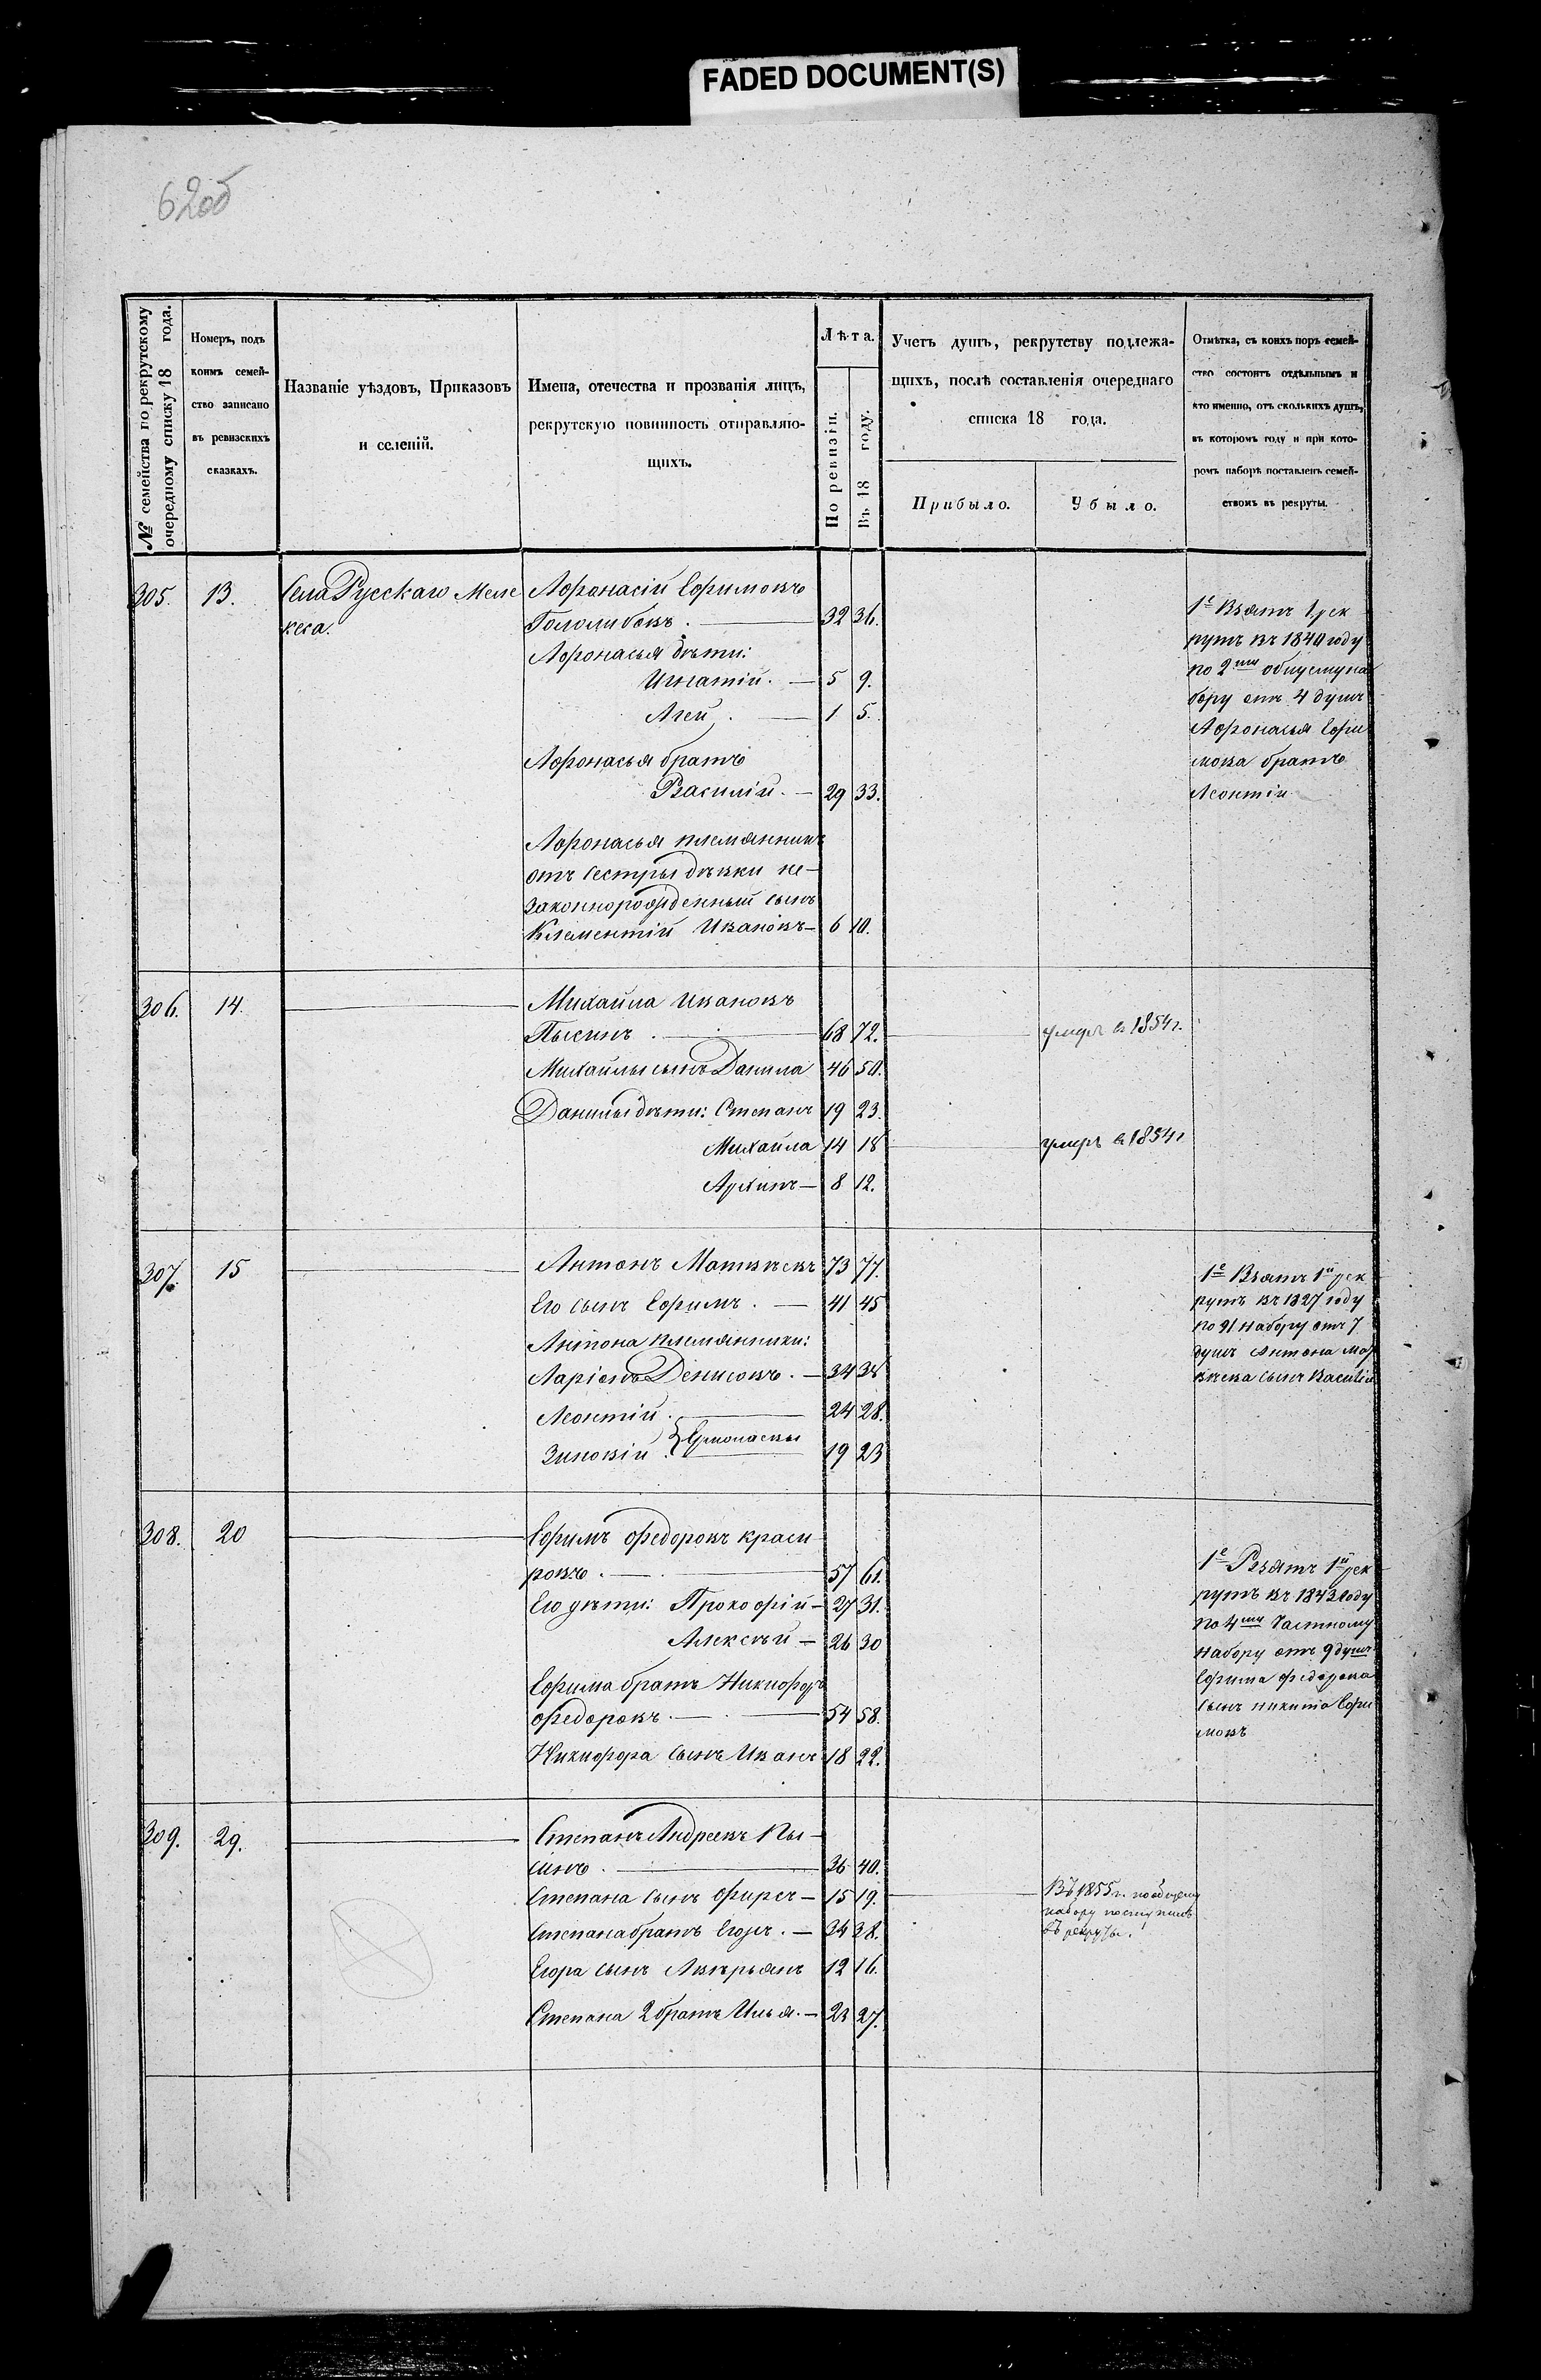 FADED DOCUMENT(S)
62об
№ семейства по рекрутскому
очередному списку 18 года.
Номеръ, подъ
коимъ семей-
ство записано
въ ревизскихъ
сказкахъ.
Названіе уѣздовъ, Приказовъ
и селеній.
Имена, отечества и прозванія лицъ,
рекрутскую повинность отправляю-
щихъ.
Лѣта.
По ревизіи.
Въ 18 году.
Учетъ душъ, рекрутству подлежа-
щихъ, послѣ составленія очереднаго
списка 18 года.
Прибыло.
Убыло.
Отмѣтка, съ коихъ поръ семей-
ство состоитъ отдѣльнымъ и
кто именно, отъ сколькихъ душъ,
въ которомъ году и при кото-
ромъ наборѣ поставленъ семей-
ствомъ въ рекруты.
305. 13. Села Русскаго Меле
кеса.
Афонасій Ефимовъ
Гололибовъ. — 32 36.
Афонасья дѣти:
Игнатій. — 5 9.
Агей. — 1 5.
Афонасья братъ
Василій. — 29 33.
Афонасья племянникъ
отъ сестры дѣвки не-
законнорожденный сынъ
Клементій Ивановъ — 6 10.
1е Взятъ 1 рек
рутъ въ 1840 году
по 2му общему на
бору отъ 4 душъ
Афонасья Ефи
мова братъ
Леонтій
306. 14. — Михайла Ивановъ
Пысинъ. — 68 72. — умеръ въ 1854 г.
Михайлы сынъ Данила 46 50.
Данилы дѣти: Степанъ 19 23.
Михайла 14 18 — умеръ въ 1854 г
Архипъ — 8 12.
307. 15 — Антонъ Матвѣевъ 73 77.
Его сынъ Ефимъ. — 41 45
Антона племянники:
Ларіонъ Денисовъ. — 34 38
Леонтій. — 24 28.
Зиновій. } Ермолаевы 19 23
1е Взятъ 1й рек
рутъ въ 1827 году
по 91 набору отъ 7
душъ Антона Мат
вѣева сынъ Василій
308. 20 — Ефимъ Федоровъ Краси
ровъ. — 57 61.
Его дѣти: Прокофій — 27 31.
Алексѣй — 26 30
Ефима братъ Никифоръ
Федоровъ. — 54 58.
Никифора сынъ Иванъ 18 22.
1е Взятъ 1й рек
рутъ въ 1843 году
по 4му частному
набору отъ 9 душъ
Ефима Федорова
сынъ Никита Ефи
мовъ
309. 29. — Степанъ Андреевъ Пы-
синъ. — 36 40.
Степана сынъ Фирсъ — 15 19. —
Степана братъ Егоръ. — 34 38.
Егора сынъ Авѣрьянъ 12 16.
Степана 2 братъ Илья. — 23 27.
Въ 1855 г. по общему
набору поступилъ
въ рекруты.